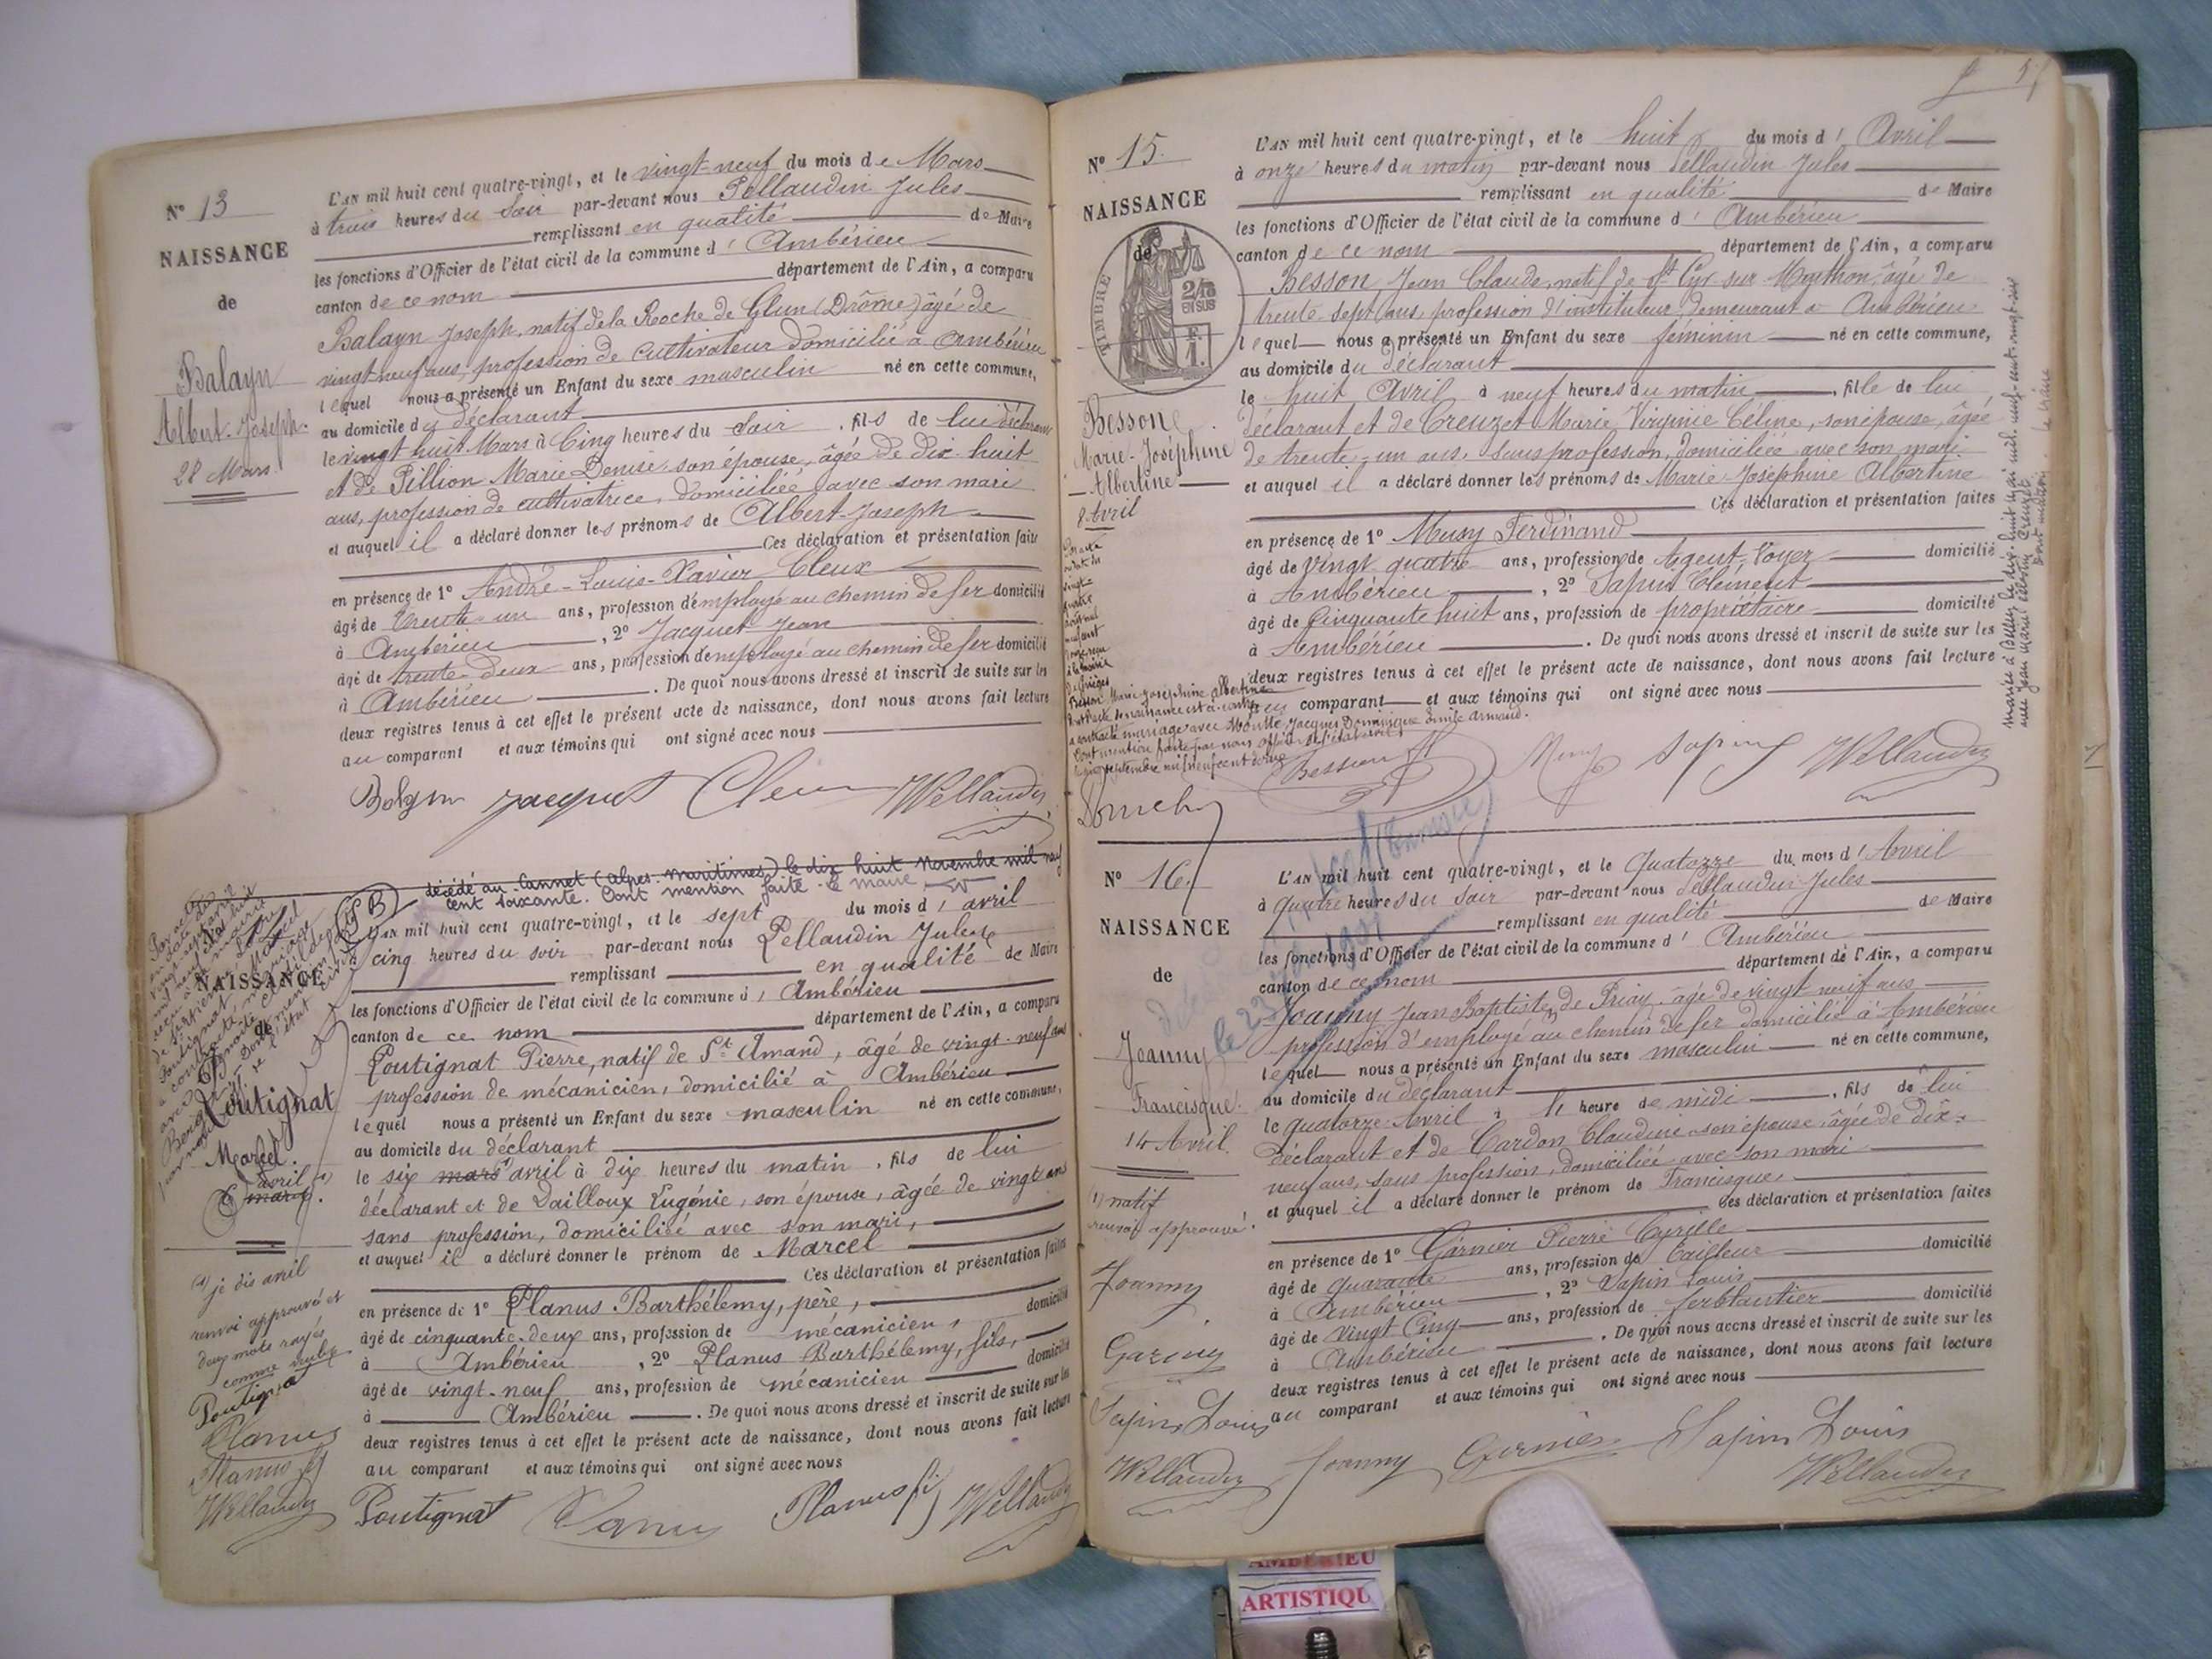 Nº 13
NAISSANCE
de
Balayn
Albert-Joseph.
28 Mars.
L'AN mil huit cent quatre-vingt, et le vingt-neuf du mois de Mars
à trois heures du Soir par-devant nous Pellaudin Jules
remplissant en qualité de Maire
les fonctions d'Officier de l'état civil de la commune d'Ambérieu
canton de ce nom département de l'Ain, a comparu
Balayn Joseph, natif de la Roche de Glun (Drôme) âgé de
vingt-neuf ans, profession de Cultivateur domicilié à Ambérieu
lequel nous a présenté un Enfant du sexe masculin né en cette commune,
au domicile du déclarant
le vingt huit Mars à Cinq heures du Soir, fils de lui déclarant
et de Pillion Marie Denise son épouse, âgée de dix-huit
ans, profession de cultivatrice, domiciliée avec son mari
et auquel il a déclaré donner les prénoms de Albert-Joseph
Ces déclaration et présentation faites
en présence de 1º André-Louis-Xavier Cleux
âgé de trente-un ans, profession d'employé au chemin de fer domicilié
à Ambérieu, 2º Jacquet Jean
âgé de trente-deux ans, profession d'employé au chemin de fer domicilié
à Ambérieu. De quoi nous avons dressé et inscrit de suite sur les
deux registres tenus à cet effet le présent acte de naissance, dont nous avons fait lecture
au comparant et aux témoins qui ont signé avec nous
Balayn Jacquet Cleux Pellaudin
décédé au Cannet (Alpes-maritimes) le dix huit Novembre mil neuf
cent soixante. Dont mention faite. Le maire
NAISSANCE
de
Poutignat
Marcel.
6 mars. avril (1)
(1) je dis avril
renvoi approuvé et
deux mots rayés
comme nuls
Poutignat
Planus
Planus fs
Pellaudin
L'AN mil huit cent quatre-vingt, et le sept du mois d'avril
à cinq heures du soir par-devant nous Pellaudin Jules
remplissant en qualité de Maire
les fonctions d'Officier de l'état civil de la commune d'Ambérieu
canton de ce nom département de l'Ain, a comparu
Poutignat Pierre, natif de St Amand, âgé de vingt-neuf ans
profession de mécanicien, domicilié à Ambérieu
lequel nous a présenté un Enfant du sexe masculin né en cette commune,
au domicile du déclarant
le six mars avril à dix heures du matin, fils de lui
déclarant et de Dailloux Eugénie, son épouse, âgée de vingt ans
sans profession, domiciliée avec son mari,
et auquel il a déclaré donner le prénom de Marcel
Ces déclaration et présentation faites
en présence de 1º Planus Barthélemy, père,
âgé de cinquante-deux ans, profession de mécanicien, domicilié
à Ambérieu, 2º Planus Barthélemy, fils,
âgé de vingt-neuf ans, profession de mécanicien domicilié
à Ambérieu. De quoi nous avons dressé et inscrit de suite sur les
deux registres tenus à cet effet le présent acte de naissance, dont nous avons fait lecture
au comparant et aux témoins qui ont signé avec nous
Poutignat Planus Planus fs Pellaudin
Nº 15.
NAISSANCE
de
TIMBRE
2/10
EN SUS
F.
1.
Besson
Marie-Joséphine
Albertine
8 Avril
L'AN mil huit cent quatre-vingt, et le huit du mois d'Avril
à onze heures du matin par-devant nous Pellaudin Jules
remplissant en qualité de Maire
les fonctions d'Officier de l'état civil de la commune d'Ambérieu
canton de ce nom département de l'Ain, a comparu
Besson Jean Claude, natif de St Cyr-sur-Menthon, âgé de
trente-sept ans, profession d'instituteur, demeurant à Ambérieu
lequel nous a présenté un Enfant du sexe féminin né en cette commune,
au domicile du déclarant
le huit Avril à neuf heures du matin, fille de lui
déclarant et de Creuzet Marie Virginie Céline, son épouse, âgée
de trente-un ans, sans profession, domiciliée avec son mari
et auquel il a déclaré donner les prénoms de Marie-Joséphine Albertine
Ces déclaration et présentation faites
en présence de 1º Musy Ferdinand
âgé de vingt quatre ans, profession de Agent-Voyer domicilié
à Ambérieu, 2º Sapin Clément
âgé de Cinquante huit ans, profession de propriétaire domicilié
à Ambérieu. De quoi nous avons dressé et inscrit de suite sur les
deux registres tenus à cet effet le présent acte de naissance, dont nous avons fait lecture
au comparant et aux témoins qui ont signé avec nous
Besson Marie Joséphine Albertine
a contracté mariage avec Jacques Dominique Emile Armand.
Dont mention faite par nous officier de l'état civil
Besson Musy Sapin Pellaudin
Nº 16.
NAISSANCE
de
Joanny
Francisque.
14 Avril.
(1) natif
renvoi approuvé.
Joanny
Garnier
Sapin Louis
Pellaudin
L'AN mil huit cent quatre-vingt, et le Quatorze du mois d'Avril
à quatre heures du Soir par-devant nous Pellaudin Jules
remplissant en qualité de Maire
les fonctions d'Officier de l'état civil de la commune d'Ambérieu
canton de ce nom département de l'Ain, a comparu
Joanny Jean Baptiste (1) de Priay, âgé de vingt neuf ans
profession d'employé au chemin de fer domicilié à Ambérieu
lequel nous a présenté un Enfant du sexe masculin né en cette commune,
au domicile du déclarant
le quatorze Avril à heure de midi, fils de lui
déclarant et de Cardon Claudine son épouse, âgée de dix-
neuf ans, sans profession, domiciliée avec son mari
et auquel il a déclaré donner le prénom de Francisque
Ces déclaration et présentation faites
en présence de 1º Garnier Pierre Cyrille
âgé de quarante ans, profession de tailleur domicilié
à Ambérieu, 2º Sapin Louis
âgé de vingt Cinq ans, profession de ferblantier domicilié
à Ambérieu. De quoi nous avons dressé et inscrit de suite sur les
deux registres tenus à cet effet le présent acte de naissance, dont nous avons fait lecture
au comparant et aux témoins qui ont signé avec nous
Joanny Garnier Sapin Louis Pellaudin
AMBERIEU
ARTISTIQU